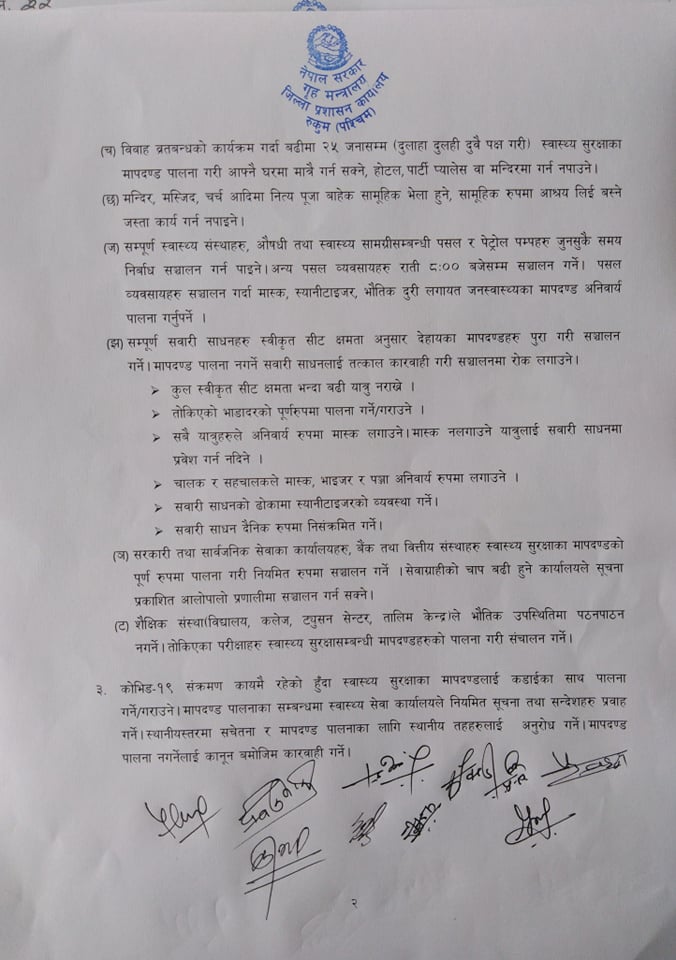 नेपाल सरकार
गृह मन्त्रालय
जिल्ला प्रशासन कार्यालय
रुकुम (पश्चिम)
(च) विवाह ब्रतबन्धको कार्यक्रम गर्दा बढीमा २५ जनासम्म (दुलाहा दुलही दुवै पक्ष गरी) स्वास्थ्य सुरक्षाका
मापदण्ड पालना गरी आफ्नै घरमा मात्रै गर्न सक्ने, होटल, पार्टी प्यालेस वा मन्दिरमा गर्न नपाउने।
(छ) मन्दिर, मस्जिद, चर्च आदिमा नित्य पूजा बाहेक सामूहिक भेला हुने, सामूहिक रुपमा आश्रय लिई बस्ने
जस्ता कार्य गर्न नपाइने।
(ज) सम्पूर्ण स्वास्थ्य संस्थाहरु, औषधी तथा स्वास्थ्य सामग्रीसम्बन्धी पसल र पेट्रोल पम्पहरु जुनसुकै समय
निर्वाध सञ्चालन गर्न पाइने। अन्य पसल व्यवसायहरु राती ८:०० बजेसम्म सञ्चालन गर्ने। पसल
व्यवसायहरु सञ्चालन गर्दा मास्क, स्यानीटाइजर, भौतिक दुरी लगायत जनस्वास्थ्यका मापदण्ड अनिवार्य
पालना गर्नुपर्ने ।
(झ) सम्पूर्ण सवारी साधनहरु स्वीकृत सीट क्षमता अनुसार देहायका मापदण्डहरु पुरा गरी सञ्चालन
गर्ने। मापदण्ड पालना नगर्ने सवारी साधनलाई तत्काल कारवाही गरी सञ्चालनमा रोक लगाउने।
➢ कुल स्वीकृत सीट क्षमता भन्दा बढी यात्रु नराख्ने ।
➢ तोकिएको भाडादरको पूर्णरुपमा पालना गर्ने/गराउने ।
➢ सबै यात्रुहरुले अनिवार्य रुपमा मास्क लगाउने। मास्क नलगाउने यात्रुलाई सवारी साधनमा
प्रवेश गर्न नदिने ।
➢ चालक र सहचालकले मास्क, भाइजर र पञ्जा अनिवार्य रुपमा लगाउने ।
➢ सवारी साधनको ढोकामा स्यानीटाइजरको व्यवस्था गर्ने।
➢ सवारी साधन दैनिक रुपमा निसंक्रमित गर्ने।
(ञ) सरकारी तथा सार्वजनिक सेवाका कार्यालयहरु, बैंक तथा वित्तीय संस्थाहरु स्वास्थ्य सुरक्षाका मापदण्डको
पूर्ण रुपमा पालना गरी नियमित रुपमा सञ्चालन गर्ने । सेवाग्राहीको चाप बढी हुने कार्यालयले सूचना
प्रकाशित आलोपालो प्रणालीमा सञ्चालन गर्न सक्ने।
(ट) शैक्षिक संस्था(विद्यालय, कलेज, ट्युसन सेन्टर, तालिम केन्द्र)ले भौतिक उपस्थितिमा पठनपाठन
नगर्ने। तोकिएका परीक्षाहरु स्वास्थ्य सुरक्षासम्बन्धी मापदण्डहरुको पालना गरी संचालन गर्ने।
३. कोभिड-१९ संक्रमण कायमै रहेको हुँदा स्वास्थ्य सुरक्षाका मापदण्डलाई कडाईका साथ पालना
गर्ने/गराउने। मापदण्ड पालनाका सम्बन्धमा स्वास्थ्य सेवा कार्यालयले नियमित सूचना तथा सन्देशहरु प्रवाह
गर्ने। स्थानीयस्तरमा सचेतना र मापदण्ड पालनाका लागि स्थानीय तहहरुलाई अनुरोध गर्ने। मापदण्ड
पालना नगर्नेलाई कानून बमोजिम कारवाही गर्ने।
२